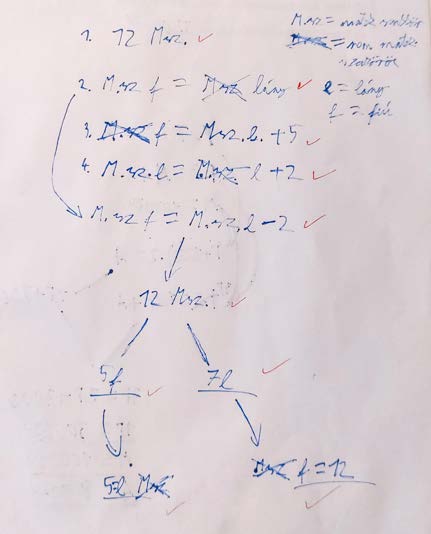 M.sz = matek szakkör
M.sz = nem matek
szakkörös
l = lány
f = fiú
1. 12 Msz.
2. M.sz f = M.sz lány
3. M.sz f = M.sz.l. +5
4. M.sz.l = M.sz l +2
M.sz f = M.sz.l -2
12 Msz.
5f
7l
5=l M.sz
M.sz f = 12